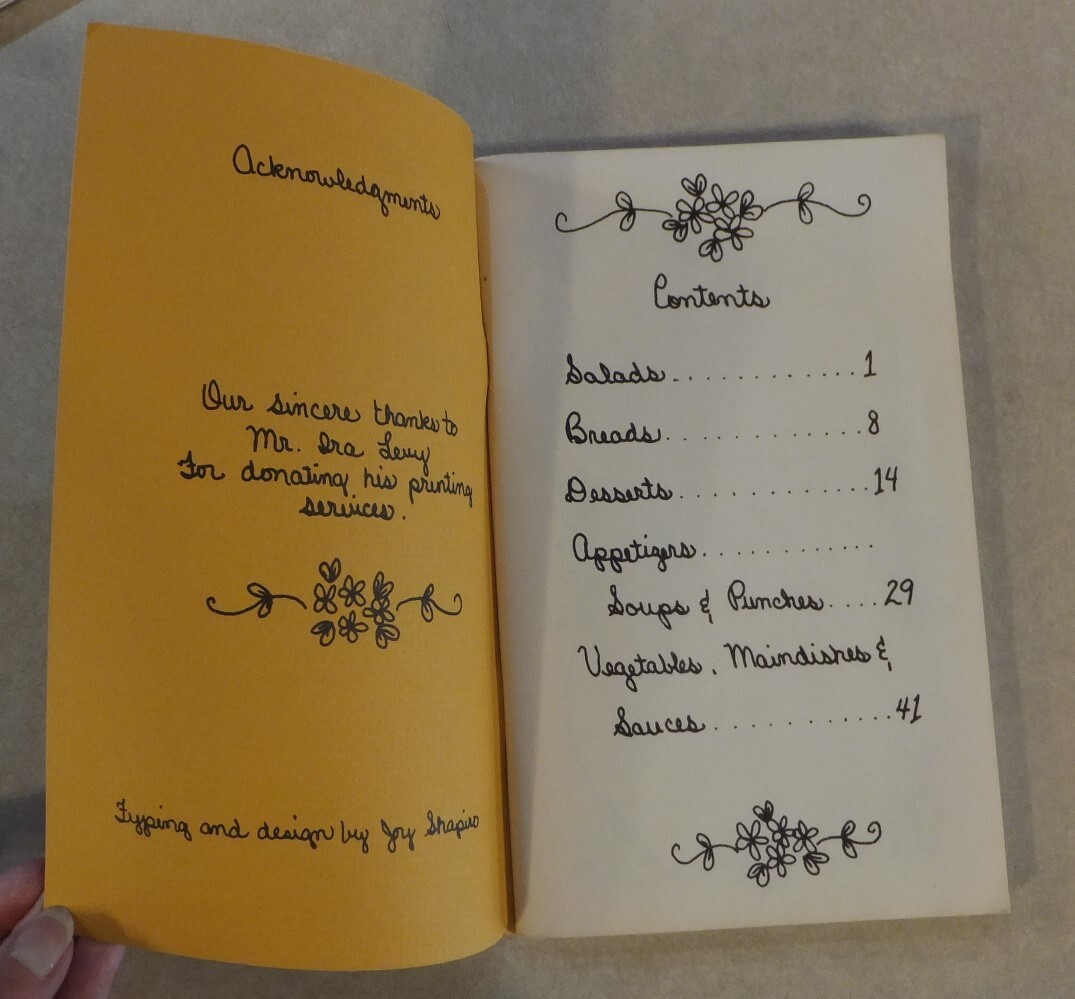 Acknowledgments
Our sincere thanks to
Mr. Ira Levy
For donating his printing
services.
Typing and design by Joy Shapiro
Contents
Salads............1
Breads............8
Desserts............14
Appetizers...........
Soups & Punches....29
Vegetables, Maindishes &
Sauces............41